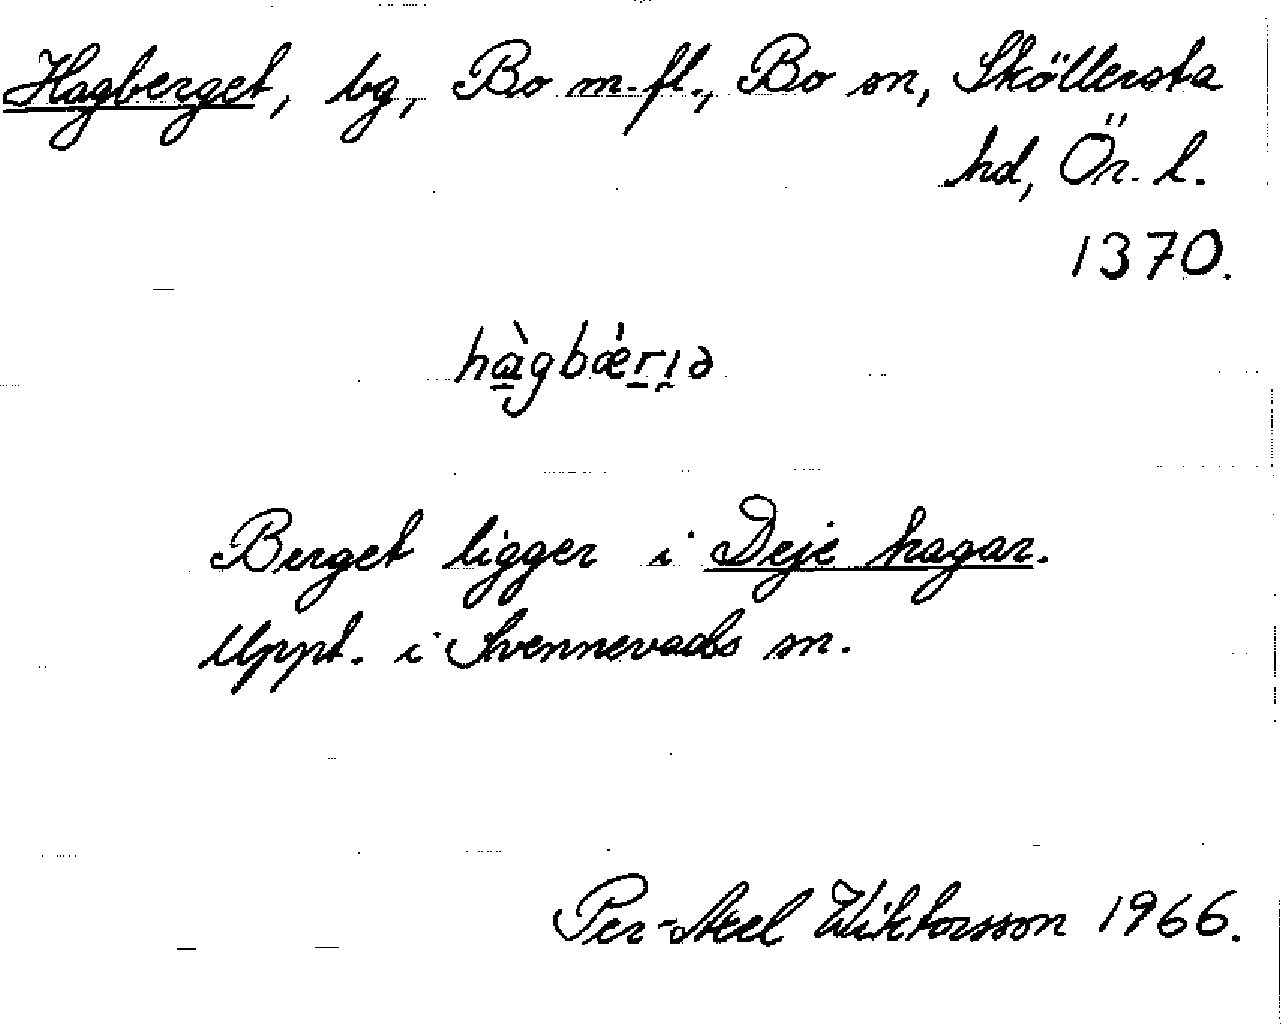 Hagberget, bg, Bo m.fl., Bo sn, Sköllersta
hd, Ör. l.
1370.
hàgbǽrı̣ə
Berget ligger i Deje hagar.
Uppt. i Svennevads sn.
Per-Axel Wiktorsson 1966.